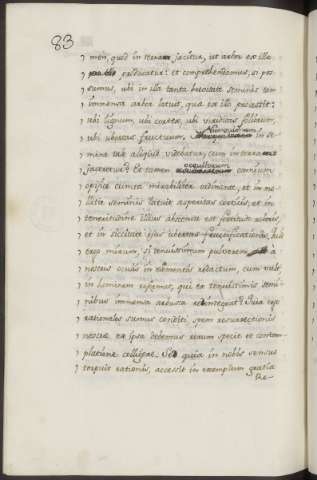 83
men, quod in terram jacitur, ut arbor ex illo
producatur: et comprehendamus, si pos-
sumus, ubi in illa tanta brevitate seminis tam
immensa arbor latuit, quæ ex illo processit:
ubi lignum, ubi cortex, ubi viriditas foliorum,
ubi ubertas fructuum. Nunquidnam in se-
mine tale aliquid videbatur, cum in terram
jaceretur? Et tamen occultorum rerum
opifice cuncta mirabiliter ordinante, et in mo-
llitie seminis latuit asperitas corticis, et in
teneritudine illius absconsa est fortitudo roboris,
et in siccitate ejus ubertas fructificationis. Quid
ergo mirum, si tenuissimum pulverem à
nostris oculis in elementis redactum, cum vult,
in hominem reformet, qui ex tenuissimis semi-
nibus immensa arbusta redintegrat? Quia ergo
rationales sumus conditi, spem resurrectionis
nostræ ex ipsa debemus rerum specie et contem-
platione colligere. Sed quia in nobis sensus
torpuit rationis, accessit in exemplum gratia
Re-